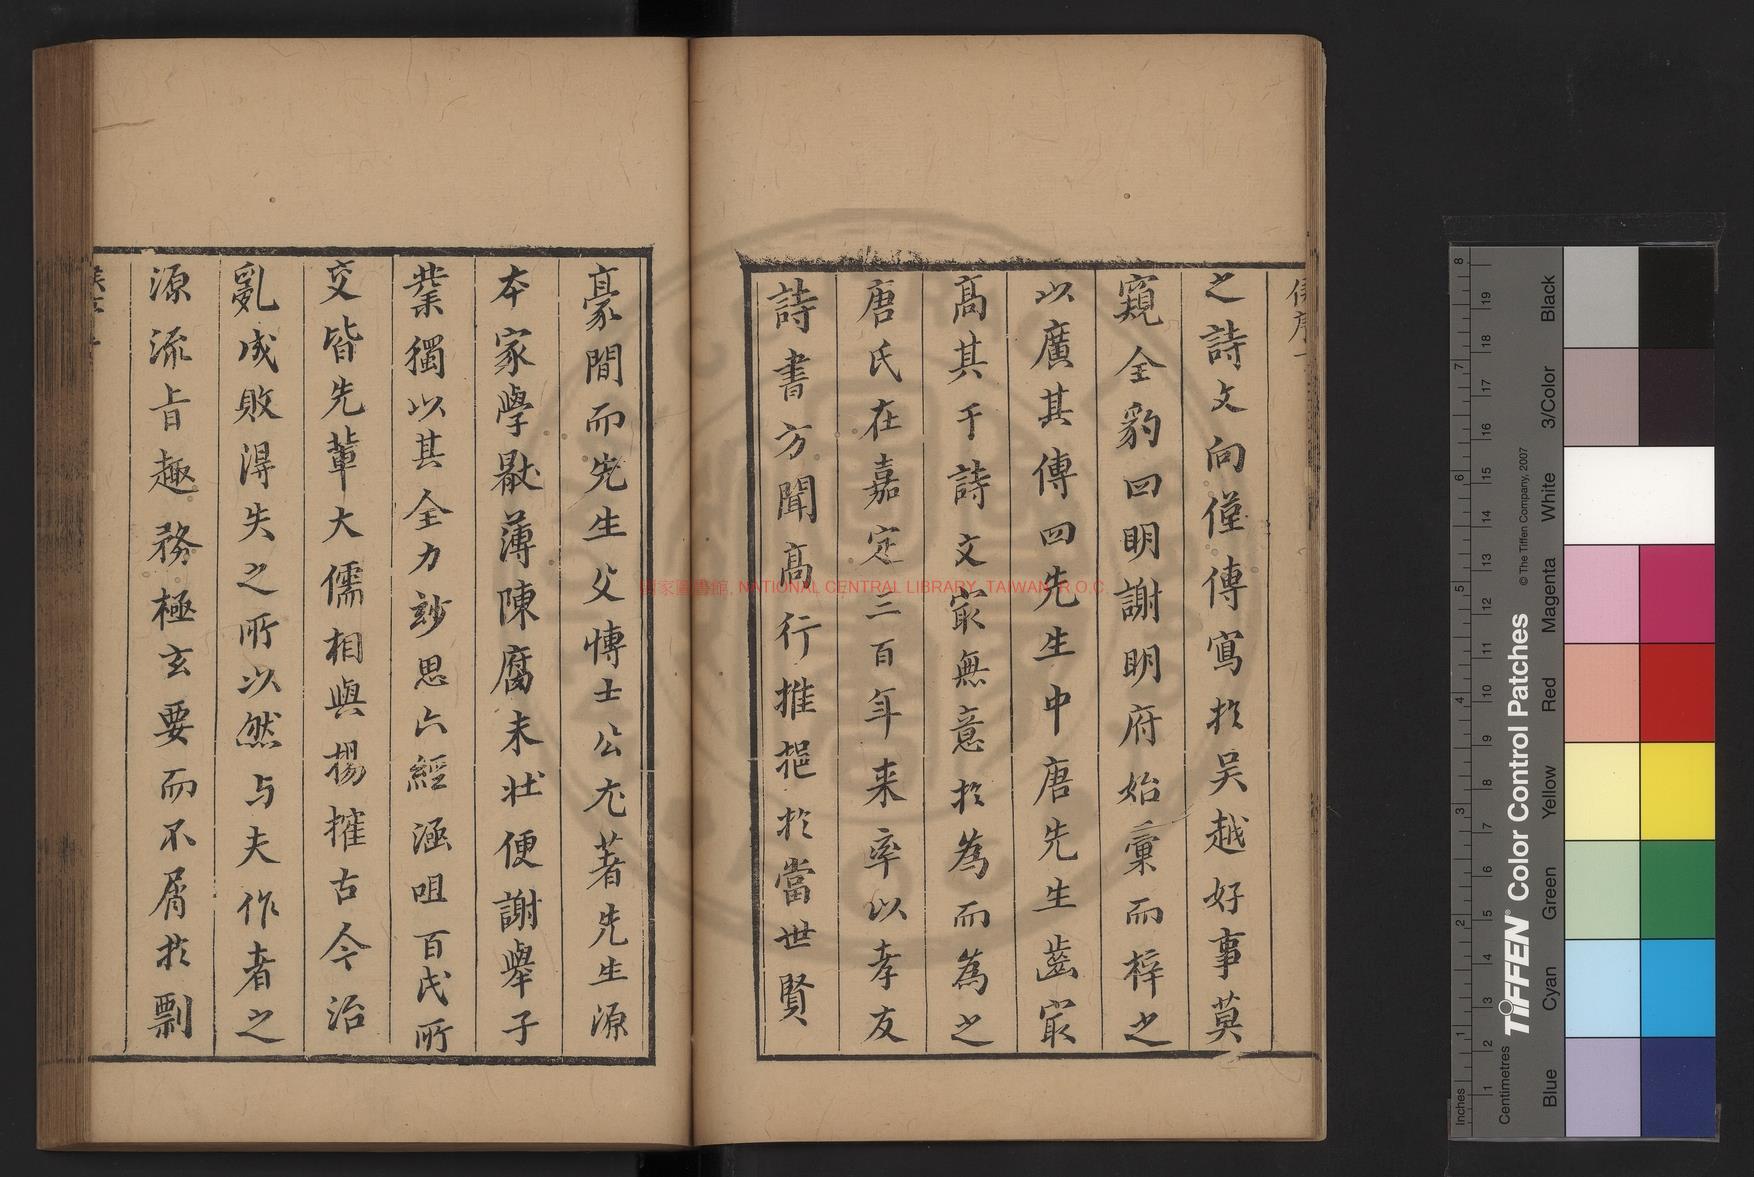 之詩文向僅傳寫於吳越好事莫
窺全豹四明謝明府始彙而梓之
以廣其傳四先生中唐先生齒㝡
高其于詩文㝡無意於為而為之
唐氏在嘉定三百年来率以孝友
詩書方聞高行推挹於當世賢
豪間而先生父博士公尤著先生源
本家學猒薄陳腐未壯便謝舉子
業獨以其全力妙思六經涵咀百氏所
交皆先輩大儒相與揚搉古今治
亂成敗得失之所以然与夫作者之
源流㫖趣務極玄要而不屑於剽
國家圖書館, NATIONAL CENTRAL LIBRARY, TAIWAN R.O.C.
TIFFEN® Color Control Patches
© The Tiffen Company, 2007
Inches
Centimetres
Blue Cyan Green Yellow Red Magenta White 3/Color Black